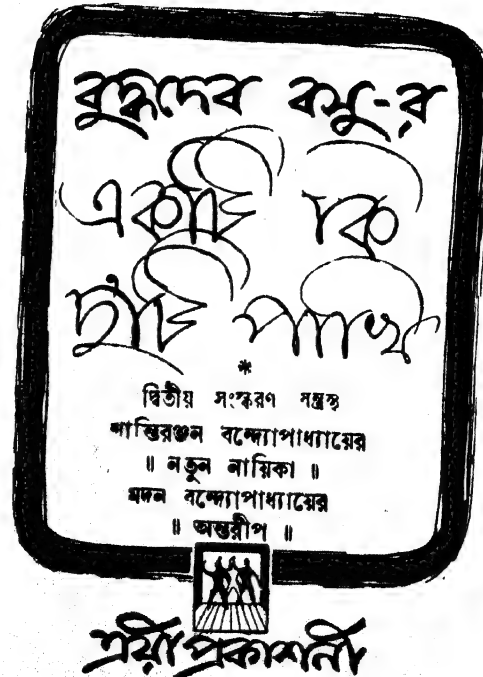 বুদ্ধদেব বসু-র
একটি কি
দুটি পাখি
*
দ্বিতীয় সংস্করণ যন্ত্রস্থ
শান্তিরঞ্জন বন্দ্যোপাধ্যায়ের
॥ নতুন নায়িকা ॥
মদন বন্দ্যোপাধ্যায়ের
॥ অন্তরীপ ॥
ত্রয়ী প্রকাশনী